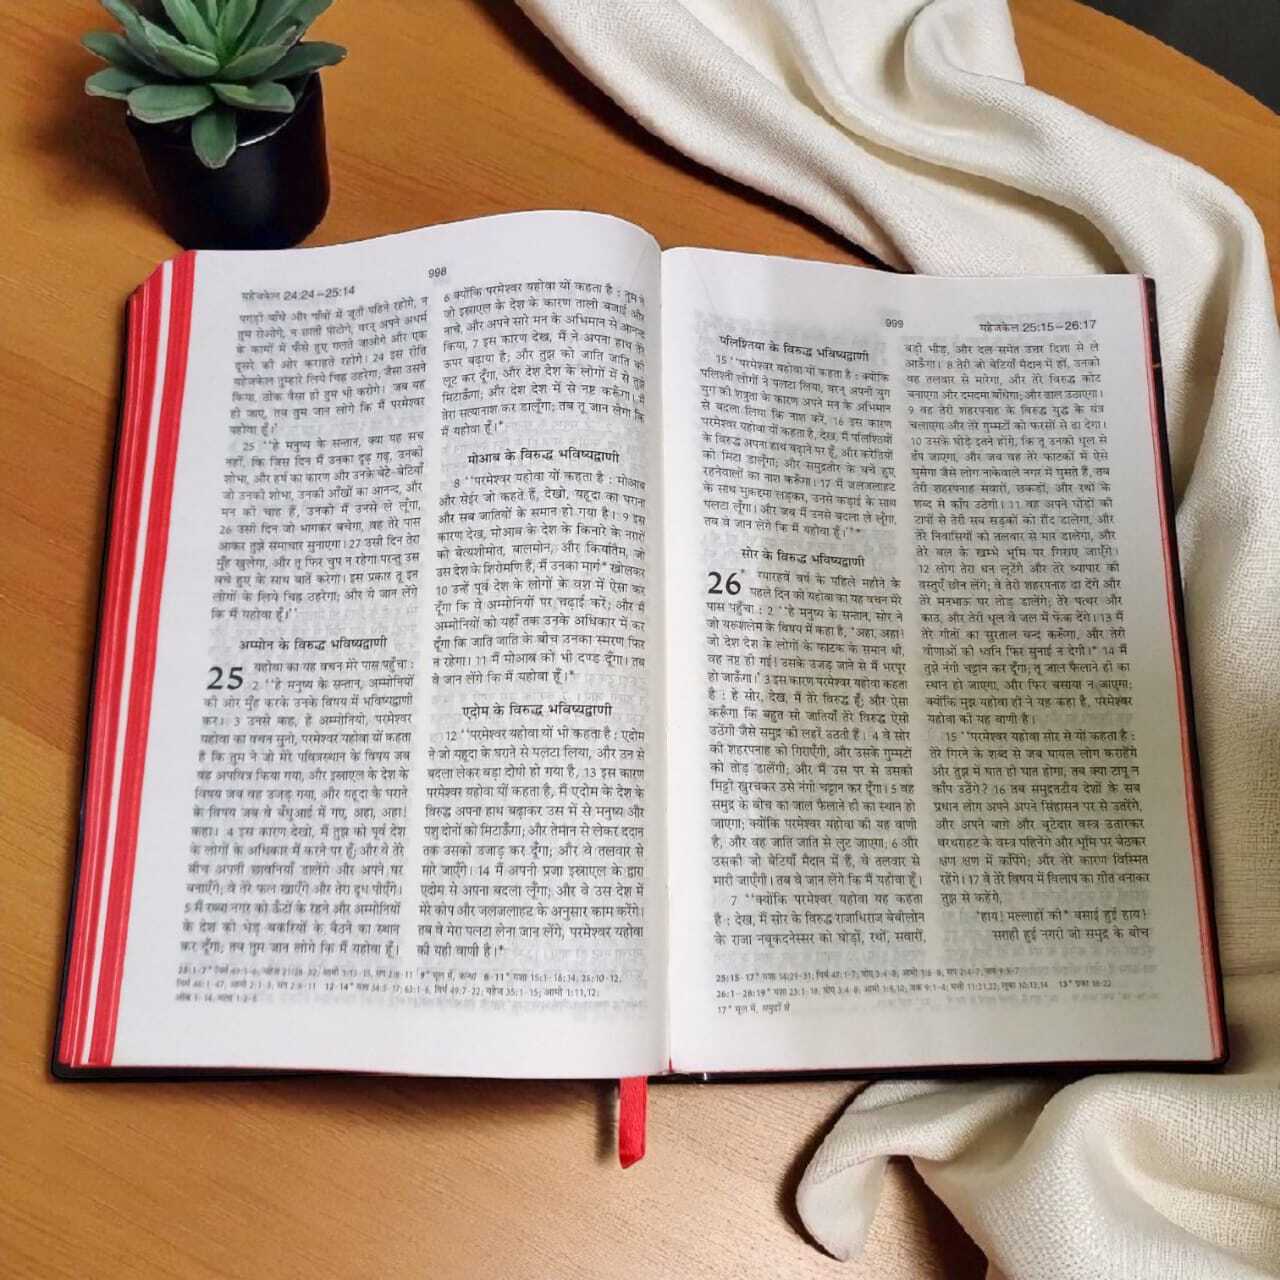 998
यहेजकेल 24:24–25:14
पगड़ी बाँधे और पाँवों में जूती पहिने रहोगे, न
तुम रोओगे, न छाती पीटोगे, वरन् अपने अधर्म
के कामों में फँसे हुए गलते जाओगे और एक
दूसरे की ओर कराहते रहोगे। 24 इस रीति
यहेजकेल तुम्हारे लिये चिह्न ठहरेगा; जैसा उसने
किया, ठीक वैसा ही तुम भी करोगे। जब यह
हो जाए, तब तुम जान लोगे कि मैं परमेश्वर
यहोवा हूँ।'
25 “हे मनुष्य के सन्तान, क्या यह सच
नहीं, कि जिस दिन मैं उनका दृढ़ गढ़, उनकी
शोभा, और हर्ष का कारण और उनके बेटे-बेटियाँ
जो उनकी शोभा, उनकी आँखों का आनन्द, और
मन की चाह हैं, उनको मैं उनसे ले लूँगा,
26 उसी दिन जो भागकर बचेगा, वह तेरे पास
आकर तुझे समाचार सुनाएगा। 27 उसी दिन तेरा
मुँह खुलेगा, और तू फिर चुप न रहेगा परन्तु उस
बचे हुए के साथ बातें करेगा। इस प्रकार तू इन
लोगों के लिये चिह्न ठहरेगा; और ये जान लेंगे
कि मैं यहोवा हूँ।”
अम्मोन के विरुद्ध भविष्यद्वाणी
25 यहोवा का यह वचन मेरे पास पहुँचा :
2 “हे मनुष्य के सन्तान, अम्मोनियों
की ओर मुँह करके उनके विषय में भविष्यद्वाणी
कर। 3 उनसे कह, हे अम्मोनियो, परमेश्वर
यहोवा का वचन सुनो, परमेश्वर यहोवा यों कहता
है कि तुम ने जो मेरे पवित्रस्थान के विषय जब
वह अपवित्र किया गया, और इस्राएल के देश के
विषय जब वह उजड़ गया, और यहूदा के घराने
के विषय जब वे बँधुआई में गए, अहा, अहा!
कहा। 4 इस कारण देखो, मैं तुझ को पूर्व देश
के लोगों के अधिकार में करने पर हूँ; और वे तेरे
बीच अपनी छावनियाँ डालेंगे और अपने घर
बनाएँगे; वे तेरे फल खाएँगे और तेरा दूध पीएँगे।
5 मैं रब्बा नगर को ऊँटों के रहने और अम्मोनियों
के देश को भेड़-बकरियों के बैठने का स्थान
कर दूँगा; तब तुम जान लोगे कि मैं यहोवा हूँ।
6 क्योंकि परमेश्वर यहोवा यों कहता है : तुम ने
जो इस्राएल के देश के कारण ताली बजाई और
नाचे, और अपने सारे मन के अभिमान से आनन्द
किया, 7 इस कारण देख, मैं ने अपना हाथ तेरे
ऊपर बढ़ाया है; और तुझ को जाति जाति की
लूट कर दूँगा, और देश देश के लोगों में से तुझे
मिटाऊँगा; और देश देश में से नष्ट करूँगा। मैं
तेरा सत्यानाश कर डालूँगा; तब तू जान लेगा कि
मैं यहोवा हूँ।*
मोआब के विरुद्ध भविष्यद्वाणी
8 “परमेश्वर यहोवा यों कहता है : मोआब
और सेईर जो कहते हैं, देखो, यहूदा का घराना
और सब जातियों के समान हो गया है। 9 इस
कारण देख, मोआब के देश के किनारे के नगरों
को बेत्यशीमोत, बालमोन, और किर्यातैम, जो
उस देश के शिरोमणि हैं, मैं उनका मार्ग* खोलकर
10 उन्हें पूर्व देश के लोगों के वश में ऐसा कर
दूँगा कि वे अम्मोनियों पर चढ़ाई करें; और मैं
अम्मोनियों को यहाँ तक उनके अधिकार में कर
दूँगा कि जाति जाति के बीच उनका स्मरण फिर
न रहेगा। 11 मैं मोआब को भी दण्ड दूँगा। तब
वे जान लेंगे कि मैं यहोवा हूँ।*
एदोम के विरुद्ध भविष्यद्वाणी
12 “परमेश्वर यहोवा यों भी कहता है : एदोम
ने जो यहूदा के घराने से पलटा लिया, और उन से
बदला लेकर बड़ा दोषी हो गया है, 13 इस कारण
परमेश्वर यहोवा यों कहता है, मैं एदोम के देश के
विरुद्ध अपना हाथ बढ़ाकर उस में से मनुष्य और
पशु दोनों को मिटाऊँगा; और तेमान से लेकर ददान
तक उसको उजाड़ कर दूँगा; और वे तलवार से
मारे जाएँगे। 14 मैं अपनी प्रजा इस्राएल के द्वारा
एदोम से अपना बदला लूँगा; और वे उस देश में
मेरे कोप और जलजलाहट के अनुसार काम करेंगे।
तब वे मेरा पलटा लेना जान लेंगे, परमेश्वर यहोवा
की यही वाणी है।*
999
यहेजकेल 25:15–26:17
पलिश्तिया के विरुद्ध भविष्यद्वाणी
15 “परमेश्वर यहोवा यों कहता है : क्योंकि
पलिश्ती लोगों ने पलटा लिया, वरन् अपनी युग
युग की शत्रुता के कारण अपने मन के अभिमान
से बदला लिया कि नाश करें, 16 इस कारण
परमेश्वर यहोवा यों कहता है, देख, मैं पलिश्तियों
के विरुद्ध अपना हाथ बढ़ाने पर हूँ, और करेतियों
को मिटा डालूँगा; और समुद्रतीर के बचे हुए
रहनेवालों का नाश करूँगा। 17 मैं जलजलाहट
के साथ मुक़द्दमा लड़कर, उनसे कड़ाई के साथ
पलटा लूँगा। और जब मैं उनसे बदला ले लूँगा,
तब वे जान लेंगे कि मैं यहोवा हूँ।”*
सोर के विरुद्ध भविष्यद्वाणी
26* ग्यारहवें वर्ष के पहिले महीने के
पहले दिन को यहोवा का यह वचन मेरे
पास पहुँचा : 2 “हे मनुष्य के सन्तान, सोर ने
जो यरूशलेम के विषय में कहा है, 'अहा, अहा!
जो देश देश के लोगों के फाटक के समान थी,
वह नष्ट हो गई! उसके उजड़ जाने से मैं भरपूर
हो जाऊँगा।' 3 इस कारण परमेश्वर यहोवा कहता
है : हे सोर, देख, मैं तेरे विरुद्ध हूँ; और ऐसा
करूँगा कि बहुत सी जातियाँ तेरे विरुद्ध ऐसी
उठेंगी जैसे समुद्र की लहरें उठती हैं। 4 वे सोर
की शहरपनाह को गिराएँगी, और उसके गुम्मटों
को तोड़ डालेंगी; और मैं उस पर से उसकी
मिट्टी खुरचकर उसे नंगी चट्टान कर दूँगा। 5 वह
समुद्र के बीच का जाल फैलाने ही का स्थान हो
जाएगा; क्योंकि परमेश्वर यहोवा की यह वाणी
है, और वह जाति जाति से लुट जाएगा; 6 और
उसकी जो बेटियाँ मैदान में हैं, वे तलवार से
मारी जाएँगी। तब वे जान लेंगे कि मैं यहोवा हूँ।
7 “क्योंकि परमेश्वर यहोवा यह कहता
है : देख, मैं सोर के विरुद्ध राजाधिराज बेबीलोन
के राजा नबूकदनेस्सर को घोड़ों, रथों, सवारों,
बड़ी भीड़, और दल समेत उत्तर दिशा से ले
आऊँगा। 8 तेरी जो बेटियाँ मैदान में हों, उनको
वह तलवार से मारेगा, और तेरे विरुद्ध कोट
बनाएगा और दमदमा बाँधेगा; और ढाल उठाएगा।
9 वह तेरी शहरपनाह के विरुद्ध युद्ध के यंत्र
चलाएगा और तेरे गुम्मटों को फरसों से ढा देगा।
10 उसके घोड़े इतने होंगे, कि तू उनकी धूल से
ढँप जाएगा, और जब वह तेरे फाटकों में ऐसे
घुसेगा जैसे लोग नाकेवाले नगर में घुसते हैं, तब
तेरी शहरपनाह सवारों, छकड़ों, और रथों के
शब्द से काँप उठेगी। 11 वह अपने घोड़ों की
टापों से तेरी सब सड़कों को रौंद डालेगा, और
तेरे निवासियों को तलवार से मार डालेगा, और
तेरे बल के खम्भे भूमि पर गिराए जाएँगे।
12 लोग तेरा धन लूटेंगे और तेरे व्यापार की
वस्तुएँ छीन लेंगे; वे तेरी शहरपनाह ढा देंगे और
तेरे मनभाऊ घर तोड़ डालेंगे; तेरे पत्थर और
काठ, और तेरी धूल वे जल में फेंक देंगे। 13 मैं
तेरे गीतों का सुरताल बन्द करूँगा, और तेरी
वीणाओं की ध्वनि फिर सुनाई न देगी।* 14 मैं
तुझे नंगी चट्टान कर दूँगा; तू जाल फैलाने ही का
स्थान हो जाएगा, और फिर बसाया न जाएगा;
क्योंकि मुझ यहोवा ही ने यह कहा है, परमेश्वर
यहोवा की यह वाणी है।
15 “परमेश्वर यहोवा सोर से यों कहता है :
तेरे गिरने के शब्द से जब घायल लोग कराहेंगे
और तुझ में घात ही घात होगा, तब क्या टापू न
काँप उठेंगे? 16 तब समुद्रतटीय देशों के सब
प्रधान लोग अपने अपने सिंहासन पर से उतरेंगे,
और अपने बागे और बूटेदार वस्त्र उतारकर
थरथराहट के वस्त्र पहिनेंगे और भूमि पर बैठकर
क्षण क्षण में काँपेंगे; और तेरे कारण विस्मित
रहेंगे। 17 वे तेरे विषय में विलाप का गीत बनाकर
तुझ से कहेंगे,
'हाय! मल्लाहों की* बसाई हुई हाय!
सराही हुई नगरी जो समुद्र के बीच
17* मूल में, समुद्रों से